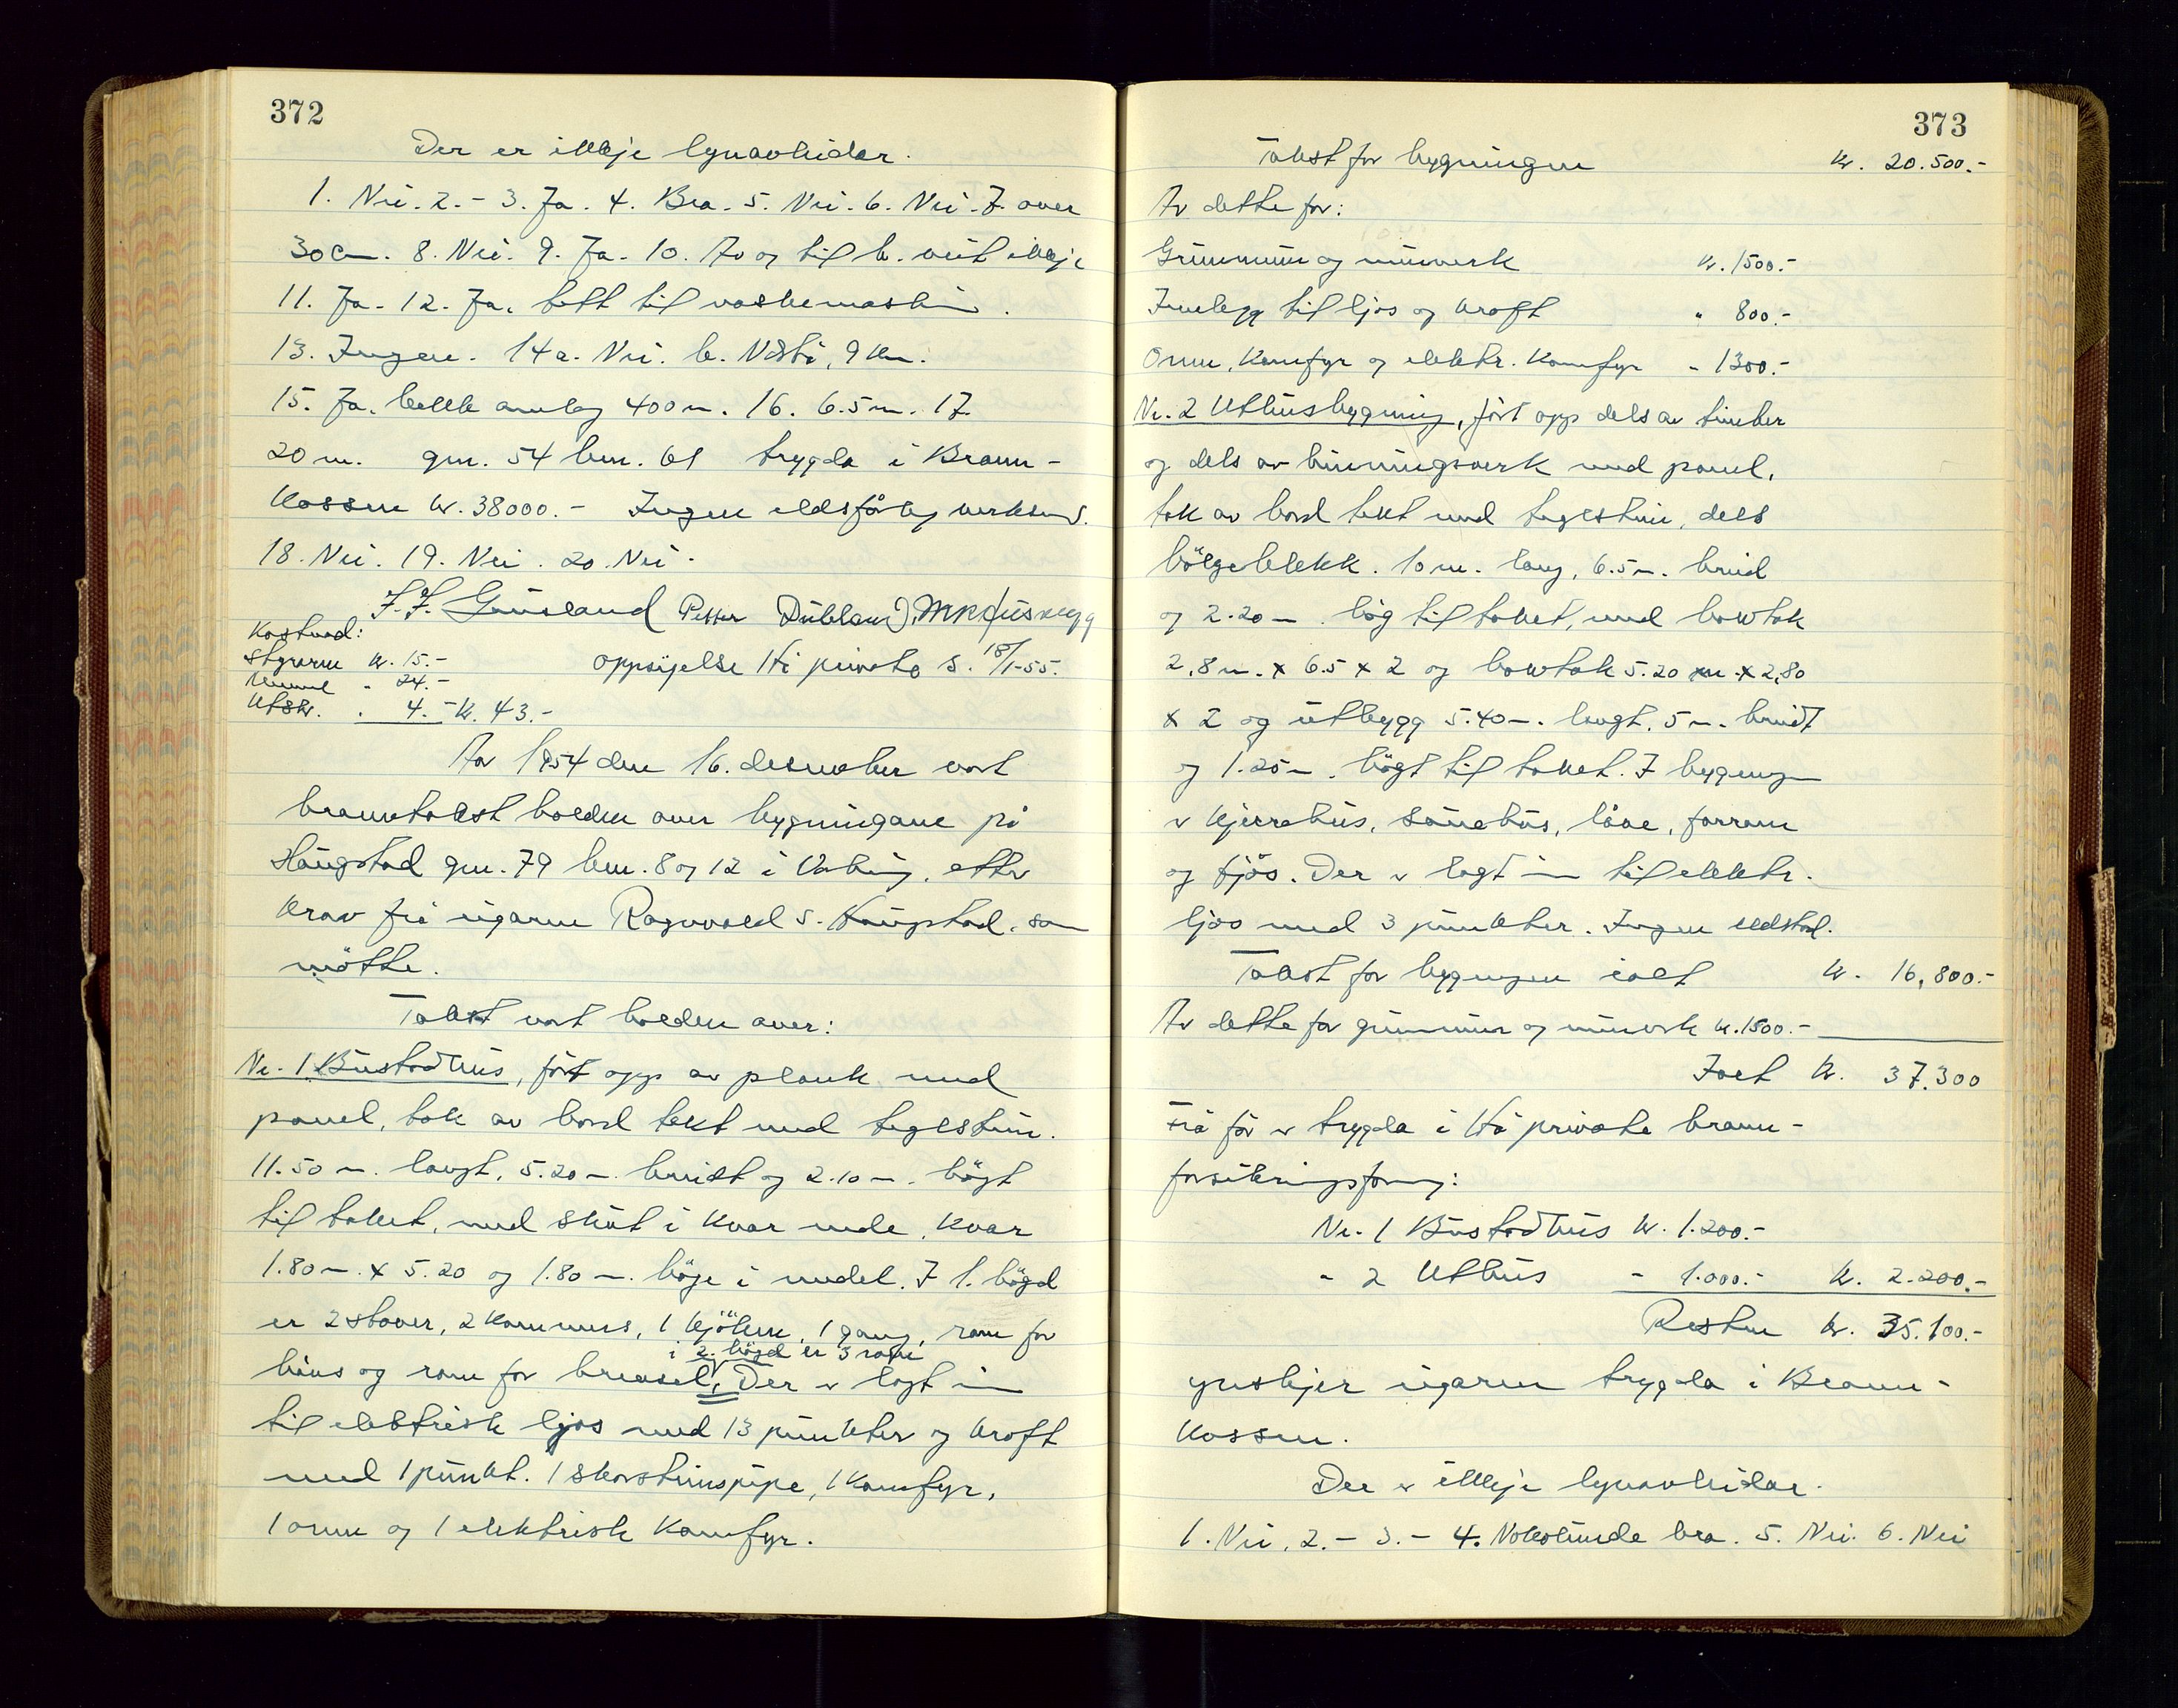 372
Der er ikkje lynavleidar.
1. Nei. 2. - 3. Ja. 4. Bra. 5. Nei. 6. Nei. 7. over
30 cm. 8. Nei. 9. Ja. 10. Av og til b. veit ikkje
11. Ja. 12. Ja. tett til vaskemaskin.
13. Ingen. 14 a. Nei. b. 9 km.
15. Ja. bekk anlag 400 m. 16. 6.5 m. 17
20 m. gnr. 54 bnr. 61 trygda i Brann-
kassen kr. 38000.- Ingen eldsfårleg verksemd.
18. Nei. 19. Nei. 20. Nei.
Petter
Kostnad:
Styraren kr. 15.- oppsigelse Hå private s. 18/1-55.
" 24.-
Utskr. " 4.- kr. 43.-
År 1954 den 16. desember vart
branntakst halden over bygningane på
Haugstad gnr. 79 bnr. 8 og 12 i Varhaug, etter
krav frå eigaren Ragnvald S. Haugstad, som
møtte.
Takst vart halden over:
Nr. 1 Bustadhus, ført opp av plank med
panel, tak av bord tekt med teglstein.
11.50 m. langt, 5.20 m. breidt og 2.10 m. høgt
til taket, med skut i kvar ende, kvar
1.80 m. x 5.20 og 1.80 m. høge i medel. I 1. høgd
er 2 stover, 2 kammers, 1 kjøken, 1 gang, rom for
i 2. høgd er 3 rom
hius og rom for brensel. Der er lagt inn
til elektrisk ljos med 13 punkter og kraft
med 1 punkt. 1 skorsteinspipe, 1 komfyr,
1 omn og 1 elektrisk komfyr.
373
Takst for bygningen kr. 20.500.-
Av dette for:
Grunnmur og murverk kr. 1500.-
Innlegg til ljos og kraft " 800.-
Omn, komfyr og elektr. komfyr " 1300.-
Nr. 2 Uthusbygning, ført opp dels av timber
og dels av binningsverk med panel,
tak av bord tekt med teglstein, dels
bølgeblekk. 10 m. lang, 6.5 m. breid
og 2.20 m. høg til taket, med halvtak
2.8 m. x 6.5 x 2 og halvtak 5.20 m. x 2,80
x 2 og utbygg 5.40 m. langt, 5 m. breidt
og 1.25 m. høgt til taket. I bygningen
er kjerrehus, sauehus, låve, forrom
og fjøs. Der er lagt inn til elektr.
ljos med 3 punkter. Ingen eldstad.
Takst for bygningen ialt kr. 16,800.-
Av dette for grunnmur og murverk kr. 1500.-
Ialt kr. 37.300
Frå før er trygda i Hå private brann-
forsikringsforening:
Nr. 1 Bustadhus kr. 1.200.-
" 2 Uthus " 1.000.- kr. 2.200.-
Resten kr. 35.100.-
ynskjer eigaren trygda i Brann-
kassen.
Der er ikkje lynavleidar.
1. Nei. 2. - 3. - 4. Nokolunde bra. 5. Nei. 6. Nei